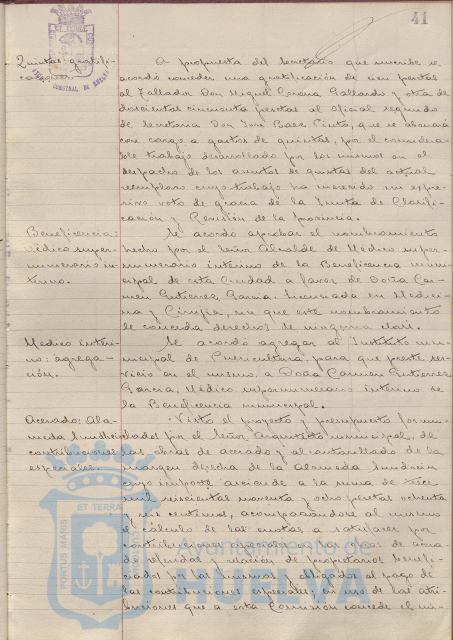 41
Quintas: gratifi-
caciones.
A propuesta del Secretario que suscribe se
acordó conceder una gratificación de cien pesetas
al Tallador Don Miguel Corona Gallardo y otra de
doscientas cincuenta pesetas al Oficial segundo
de Secretaria Don José Baez Pinto, que se abonará
con cargo a gastos de quintas, por el considera-
ble trabajo desarrollado por los mismos en el
despacho de los asuntos de quintas del actual
reemplazo cuyo trabajo ha merecido un expre-
sivo voto de gracia de la Junta de Clasifi-
cación y Revisión de la Provincia.
Beneficencia:
Médico super-
numerario in-
terino.
Se acordó aprobar el nombramiento
hecho por el Señor Alcalde de Médico super-
numerario interino de la Beneficencia muni-
cipal de esta Ciudad a favor de Doña Car-
men Gutierrez Garcia, licenciada en Medici-
na y Cirugía, sin que este nombramiento
le conceda derechos de ninguna clase.
Medico interi-
no: agrega-
ción.
Se acordó agregar al Instituto mu-
nicipal de Puericultura, para que preste ser-
vicio en el mismo, a Doña Carmen Gutierrez
Garcia, Médico supernumerario interino de
la Beneficencia municipal.
Acerado: Ala-
meda Sundheim
contribuciones
especiales.
Visto el proyecto y presupuesto formu-
lados por el Señor Arquitecto municipal, de
las obras de acerado y alcantarillado de la
margen derecha de la Alameda Sundheim
cuyo importe asciende a la suma de trece
mil seiscientas noventa y ocho pesetas ochenta
y seis centimos, acompañandose al mismo
el cálculo de las cuotas a satisfacer por
contribuciones especiales en las obras de acera-
do referidas y relación de propietarios benefi-
ciados por las mismas y obligados al pago de
las contribuciones especiales; en uso de las atri-
buciones que a esta Comisión concede el nú-
PORTUS MARIS ET TERRAE
Ayuntamiento de
HUELVA